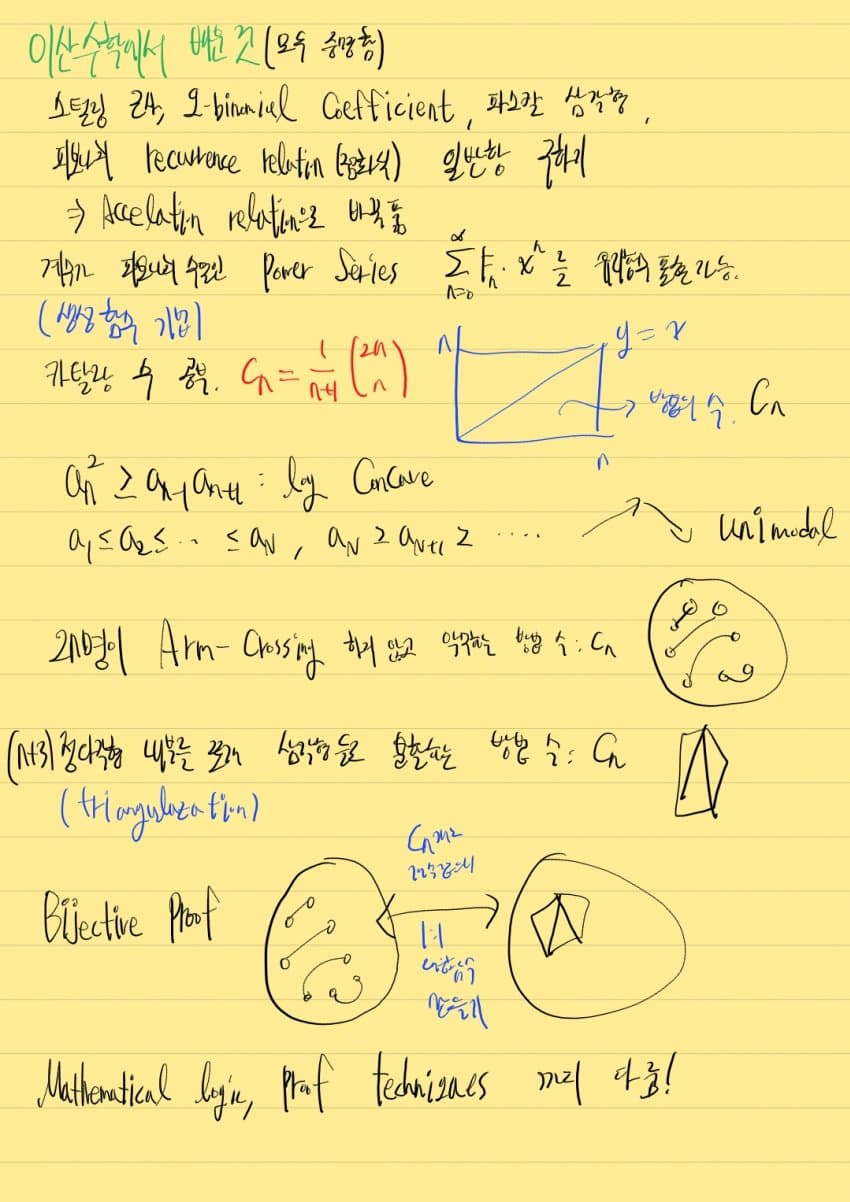 이산수학에서 배운 것 (모두 증명함)
스털링 근사, q-binomial Coefficient, 파스칼 삼각형,
피보나치 recurrence relation (점화식) 일반항 구하기
⇒ Accelation relation으로 바꿔 품
계수가 피보나치 수열인 Power Series ∑_{n=0}^{∞} F_n · x^n 를 유리함수 표현 가능.
(생성함수 기법)
카탈랑 수 공부. C_n = 1/(n+1) (2n n)
n y = x
방법의 수. C_n
n
a_n^2 ≥ a_{n-1} a_{n+1} : log Concave
a_1 ≤ a_2 ≤ ·· ≤ a_N , a_N ≥ a_{N+1} ≥ ···· unimodal
2n명이 Arm-Crossing 하지 않고 악수하는 방법 수 : C_n
(n+3) 정다각형 내부를 쪼개 삼각형들로 분할하는 방법 수 : C_n
(triangulazation)
C_n개로
Bijective Proof
1:1
대함수
만들기
Mathematical logic, proof techniques 까지 다룸!